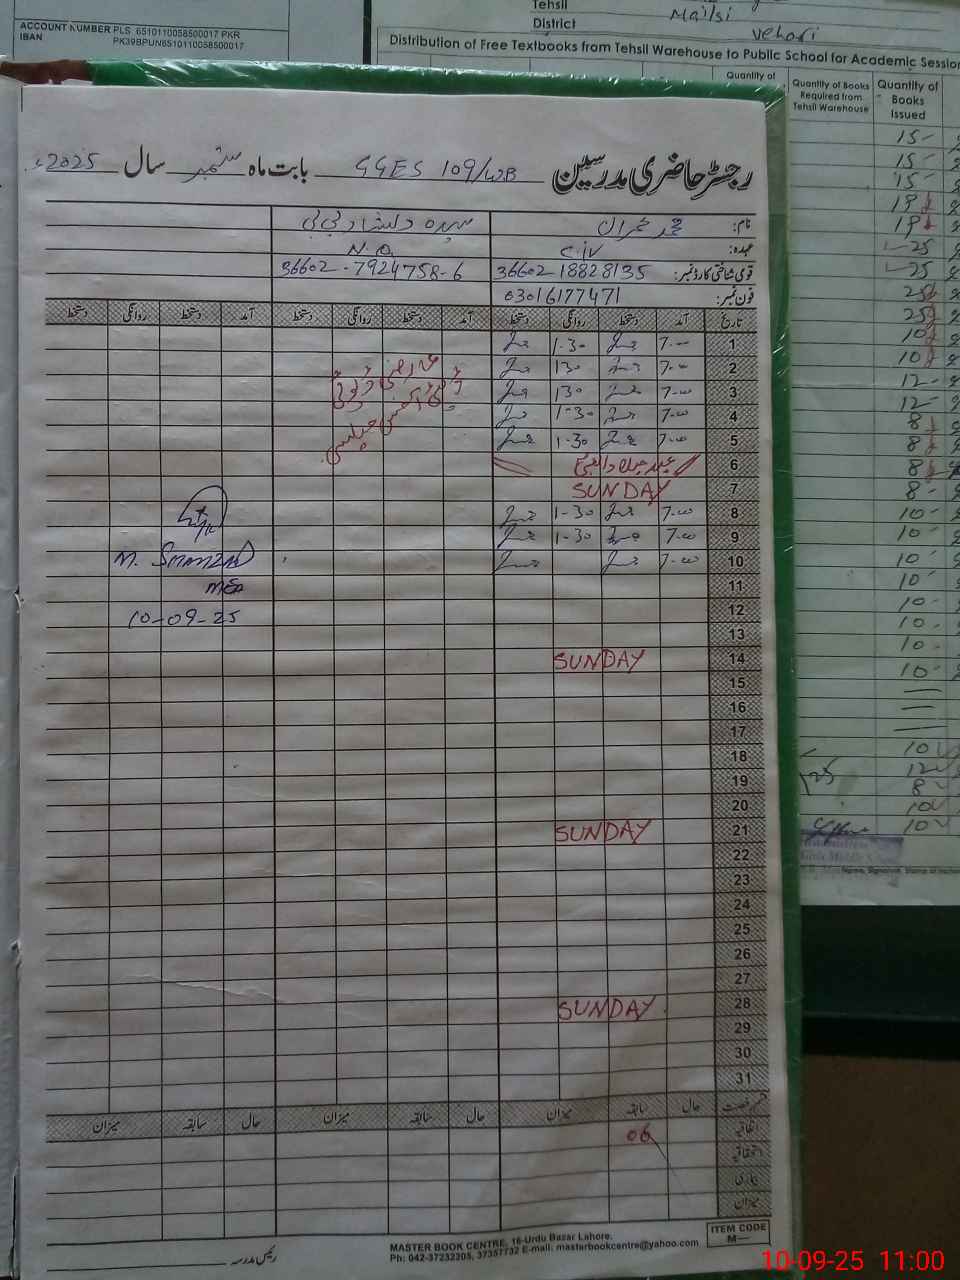 ACCOUNT NUMBER PLS 6510110058500017 PKR
IBAN PK39BPUN6510110058500017
Tehsil Mailsi
District Vehari
Distribution of Free Textbooks from Tehsil Warehouse to Public School for Academic Session
Quantity of
Quantity of Books Required from Tehsil Warehouse
Quantity of Books Issued
15-
15-
15-
19
19
25
25
25
25
10
10
12-
12-
8
8
8
8-
10-
10-
10-
10-
10-
10-
10-
10-
10
12
8
10
10
رجسٹر حاضری مدرسین GGES 109/WB بابت ماہ ستمبر سال 2025ء
نام: محمد عمران سیدہ دلشاد بی بی
عہدہ: C.IV N.Q
قومی شناختی کارڈ نمبر: 36602 18828135 36602-7924758-6
فون نمبر: 03016177471
تاریخ آمد دستخط روانگی دستخط آمد دستخط روانگی دستخط آمد دستخط روانگی دستخط
1 7.00 1-30
2 7.00 130 عارضی ڈیوٹی
3 7.00 130
4 7.00 1-30
5 7.00 1-30
6
7 SUNDAY
8 7.00 1-30
9 7.00 1-30
10 7.00 M. SHAHZAD
11 MEA
12 10-09-25
13
14 SUNDAY
15
16
17
18
19
20
21 SUNDAY
22
23
24
25
26
27
28 SUNDAY
29
30
31
قسم رخصت حال سابقہ میزان حال سابقہ میزان حال سابقہ میزان
اتفاقیہ 06
میزان
رئیس مدرسہ
MASTER BOOK CENTRE, 16-Urdu Bazar Lahore.
Ph: 042-37232305, 37357732 E-mail: masterbookcentre@yahoo.com
ITEM CODE
M—
10-09-25 11:00